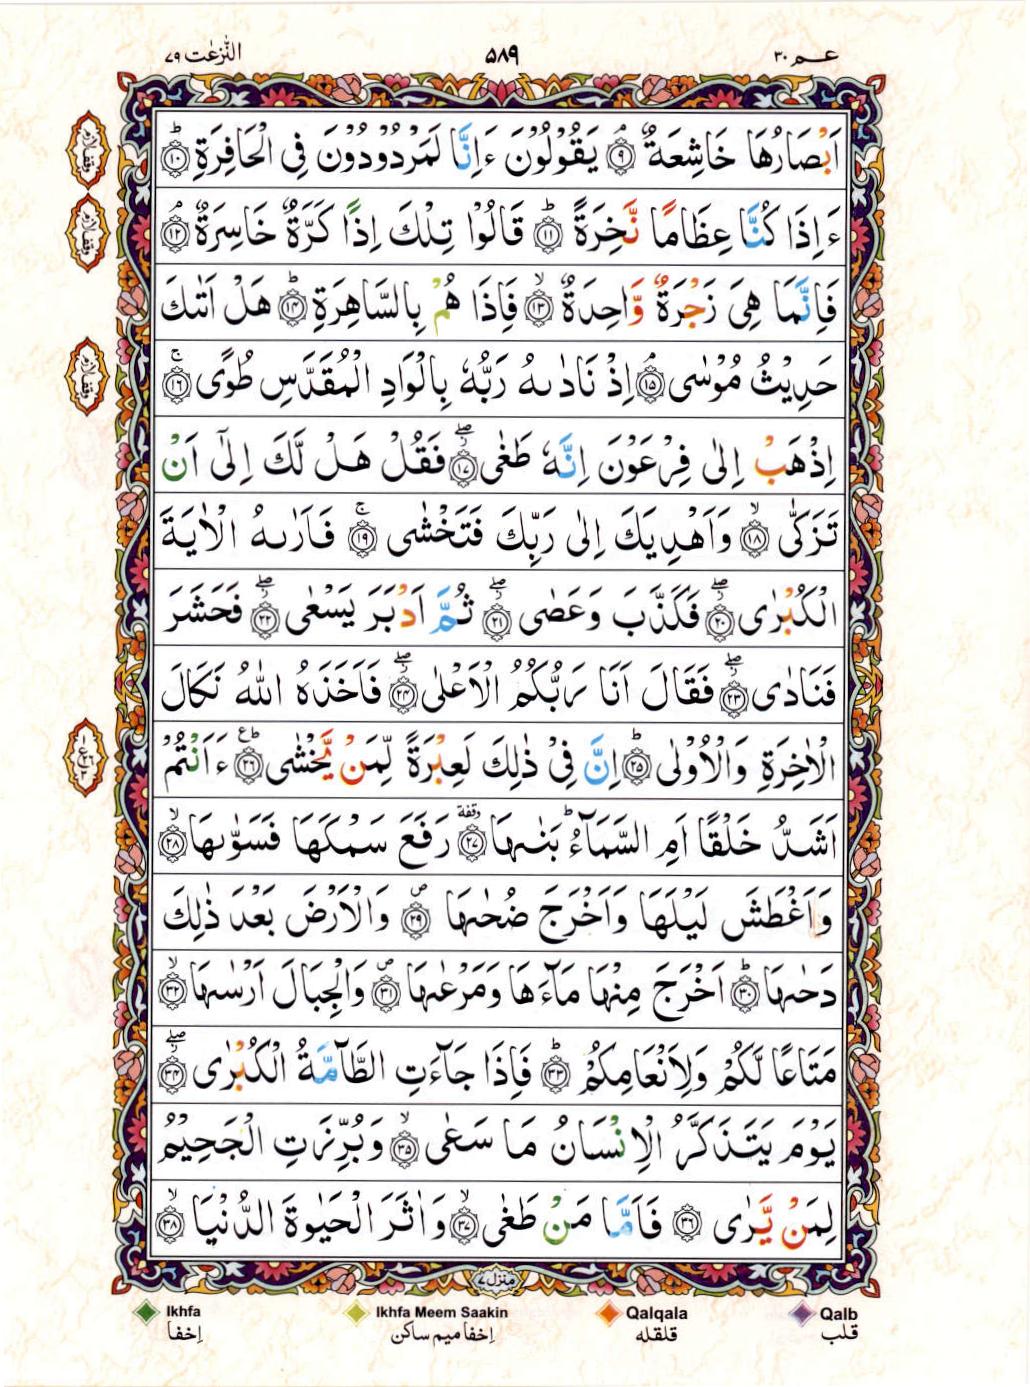 عـم ٣٠
٥٨٩
النّٰزعٰت ٧٩
اَبْصَارُهَا خَاشِعَةٌ ۘ﴿٩﴾ يَقُوْلُوْنَ ءَاِنَّا لَمَرْدُوْدُوْنَ فِى الْحَافِرَةِ ؕ﴿١٠﴾
ءَاِذَا كُنَّا عِظَامًا نَّخِرَةً ؕ﴿١١﴾ قَالُوْا تِلْكَ اِذًا كَرَّةٌ خَاسِرَةٌ ۘ﴿١٢﴾
فَاِنَّمَا هِىَ زَجْرَةٌ وَّاحِدَةٌ ۙ﴿١٣﴾ فَاِذَا هُمْ بِالسَّاهِرَةِ ؕ﴿١٤﴾ هَلْ اَتٰىكَ
حَدِيْثُ مُوْسٰى ۘ﴿١٥﴾ اِذْ نَادٰىهُ رَبُّهٗ بِالْوَادِ الْمُقَدَّسِ طُوًى ۚ﴿١٦﴾
اِذْهَبْ اِلٰى فِرْعَوْنَ اِنَّهٗ طَغٰى ۖ﴿١٧﴾ فَقُلْ هَلْ لَّكَ اِلٰٓى اَنْ
تَزَكّٰى ۙ﴿١٨﴾ وَاَهْدِيَكَ اِلٰى رَبِّكَ فَتَخْشٰى ۚ﴿١٩﴾ فَاَرٰىهُ الْاٰيَةَ
الْكُبْرٰى ۖ﴿٢٠﴾ فَكَذَّبَ وَعَصٰى ۖ﴿٢١﴾ ثُمَّ اَدْبَرَ يَسْعٰى ۖ﴿٢٢﴾ فَحَشَرَ
فَنَادٰى ۖ﴿٢٣﴾ فَقَالَ اَنَا رَبُّكُمُ الْاَعْلٰى ۖ﴿٢٤﴾ فَاَخَذَهُ اللّٰهُ نَكَالَ
الْاٰخِرَةِ وَالْاُوْلٰى ؕ﴿٢٥﴾ اِنَّ فِىْ ذٰلِكَ لَعِبْرَةً لِّمَنْ يَّخْشٰى ؕع﴿٢٦﴾ ءَاَنْتُمْ
اَشَدُّ خَلْقًا اَمِ السَّمَآءُ ؕ بَنٰىهَا وقفة﴿٢٧﴾ رَفَعَ سَمْكَهَا فَسَوّٰىهَا ۙ﴿٢٨﴾
وَاَغْطَشَ لَيْلَهَا وَاَخْرَجَ ضُحٰىهَا ص﴿٢٩﴾ وَالْاَرْضَ بَعْدَ ذٰلِكَ
دَحٰىهَا ؕ﴿٣٠﴾ اَخْرَجَ مِنْهَا مَآءَهَا وَمَرْعٰىهَا ص﴿٣١﴾ وَالْجِبَالَ اَرْسٰىهَا ۙ﴿٣٢﴾
مَتَاعًا لَّكُمْ وَلِاَنْعَامِكُمْ ؕ﴿٣٣﴾ فَاِذَا جَآءَتِ الطَّآمَّةُ الْكُبْرٰى ۖ﴿٣٤﴾
يَوْمَ يَتَذَكَّرُ الْاِنْسَانُ مَا سَعٰى ۙ﴿٣٥﴾ وَبُرِّزَتِ الْجَحِيْمُ
لِمَنْ يَّرٰى ﴿٣٦﴾ فَاَمَّا مَنْ طَغٰى ۙ﴿٣٧﴾ وَاٰثَرَ الْحَيٰوةَ الدُّنْيَا ۙ﴿٣٨﴾
وقف لازم
وقف لازم
وقف لازم
منزل ٧
Ikhfa
Ikhfa Meem Saakin
Qalqala
Qalb
إخفا
إخفا ميم ساكن
قلقله
قلب